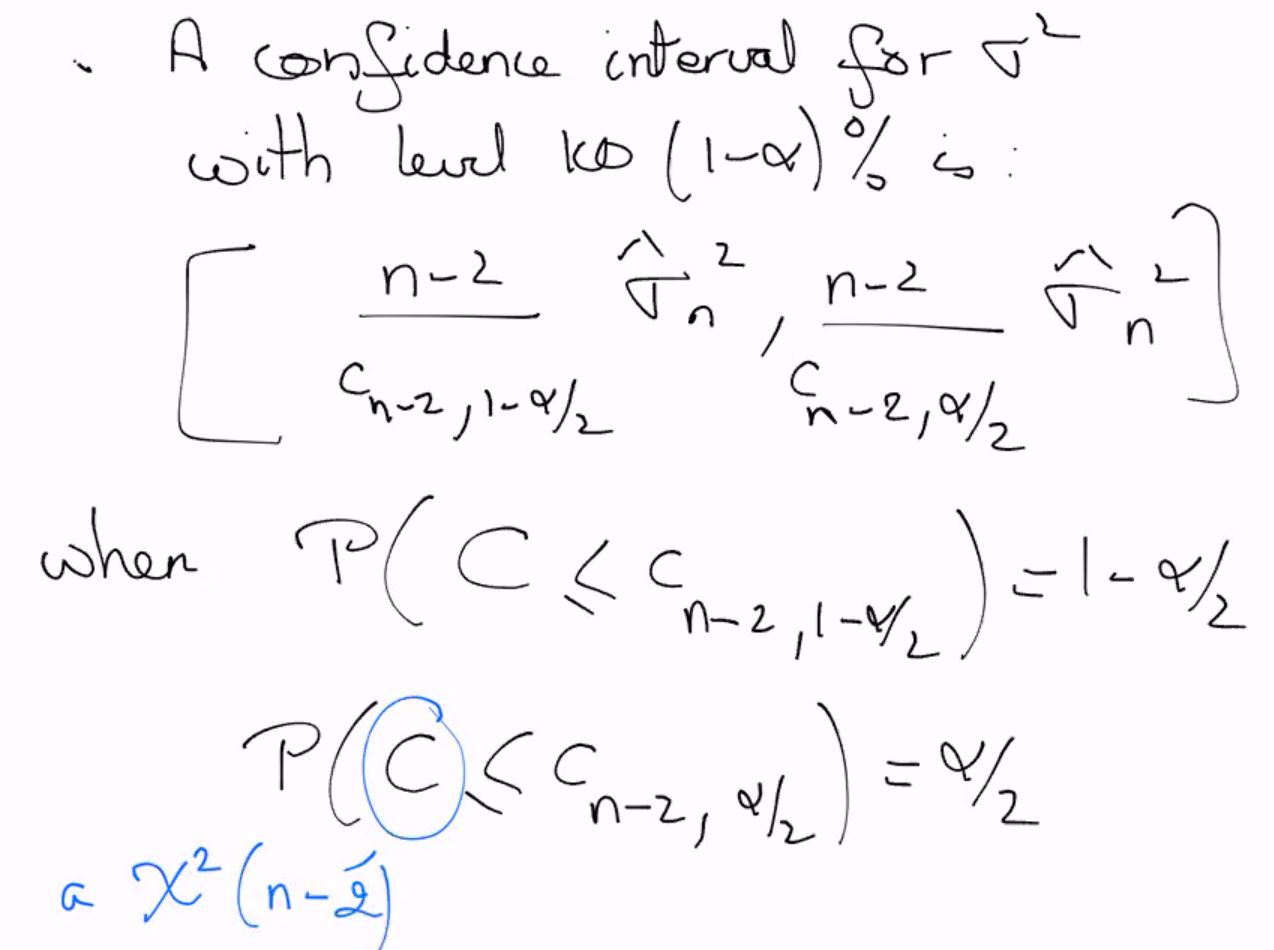 . A confidence interval for σ²
with level 100 (1-α) % is :
[ (n-2)/(c_{n-2, 1-α/2}) σ̂_n² , (n-2)/(c_{n-2, α/2}) σ̂_n² ]
when P( C ≤ c_{n-2, 1-α/2} ) = 1 - α/2
P( C ≤ c_{n-2, α/2} ) = α/2
a χ² (n-2)